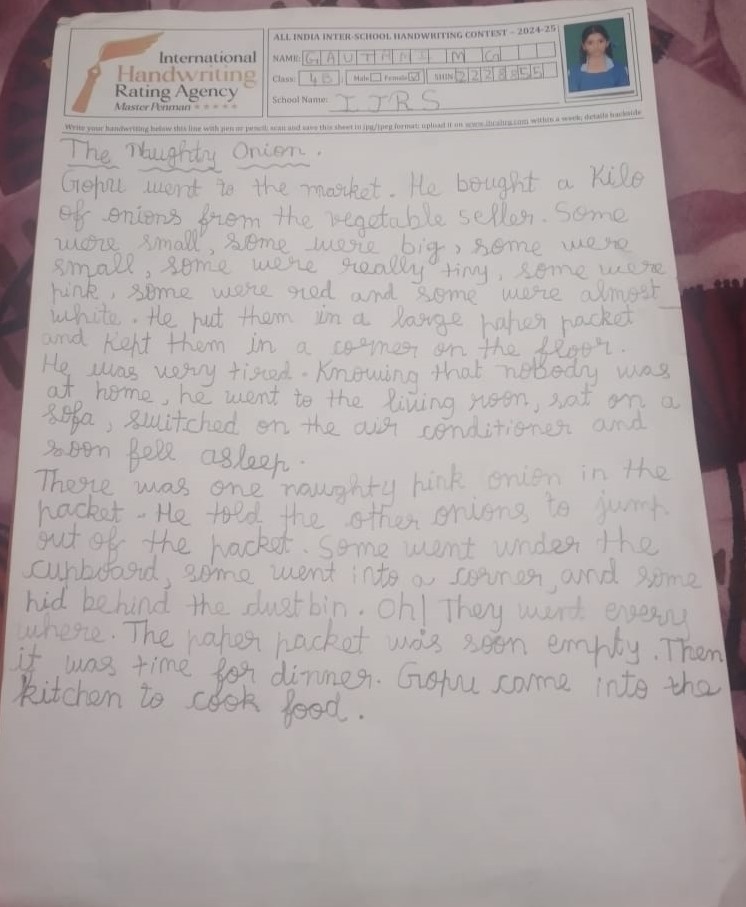 International
Handwriting
Rating Agency
Master Penman
ALL INDIA INTER-SCHOOL HANDWRITING CONTEST - 2024-25
NAME: GAUTAMI M G
Class: 4B Male Female ✓ SHIN 2228355
School Name: IJRS
Write your handwriting below this line with pen or pencil, scan and save this sheet in jpg/jpeg format; upload it on within a week; details backside
The Naughty Onion.
Gopu went to the market. He bought a Kilo
of onions from the vegetable seller. Some
were small, some were big, some were
small, some were really tiny, some were
pink, some were red and some were almost
white. He put them in a large paper packet
and kept them in a corner on the floor.
He was very tired. Knowing that nobody was
at home, he went to the living room, sat on a
sofa, switched on the air conditioner and
soon fell asleep.
There was one naughty pink onion in the
packet. He told the other onions to jump
out of the packet. Some went under the
cupboard, some went into a corner, and some
hid behind the dustbin. Oh! They went every
where. The paper packet was soon empty. Then
it was time for dinner. Gopu came into the
kitchen to cook food.